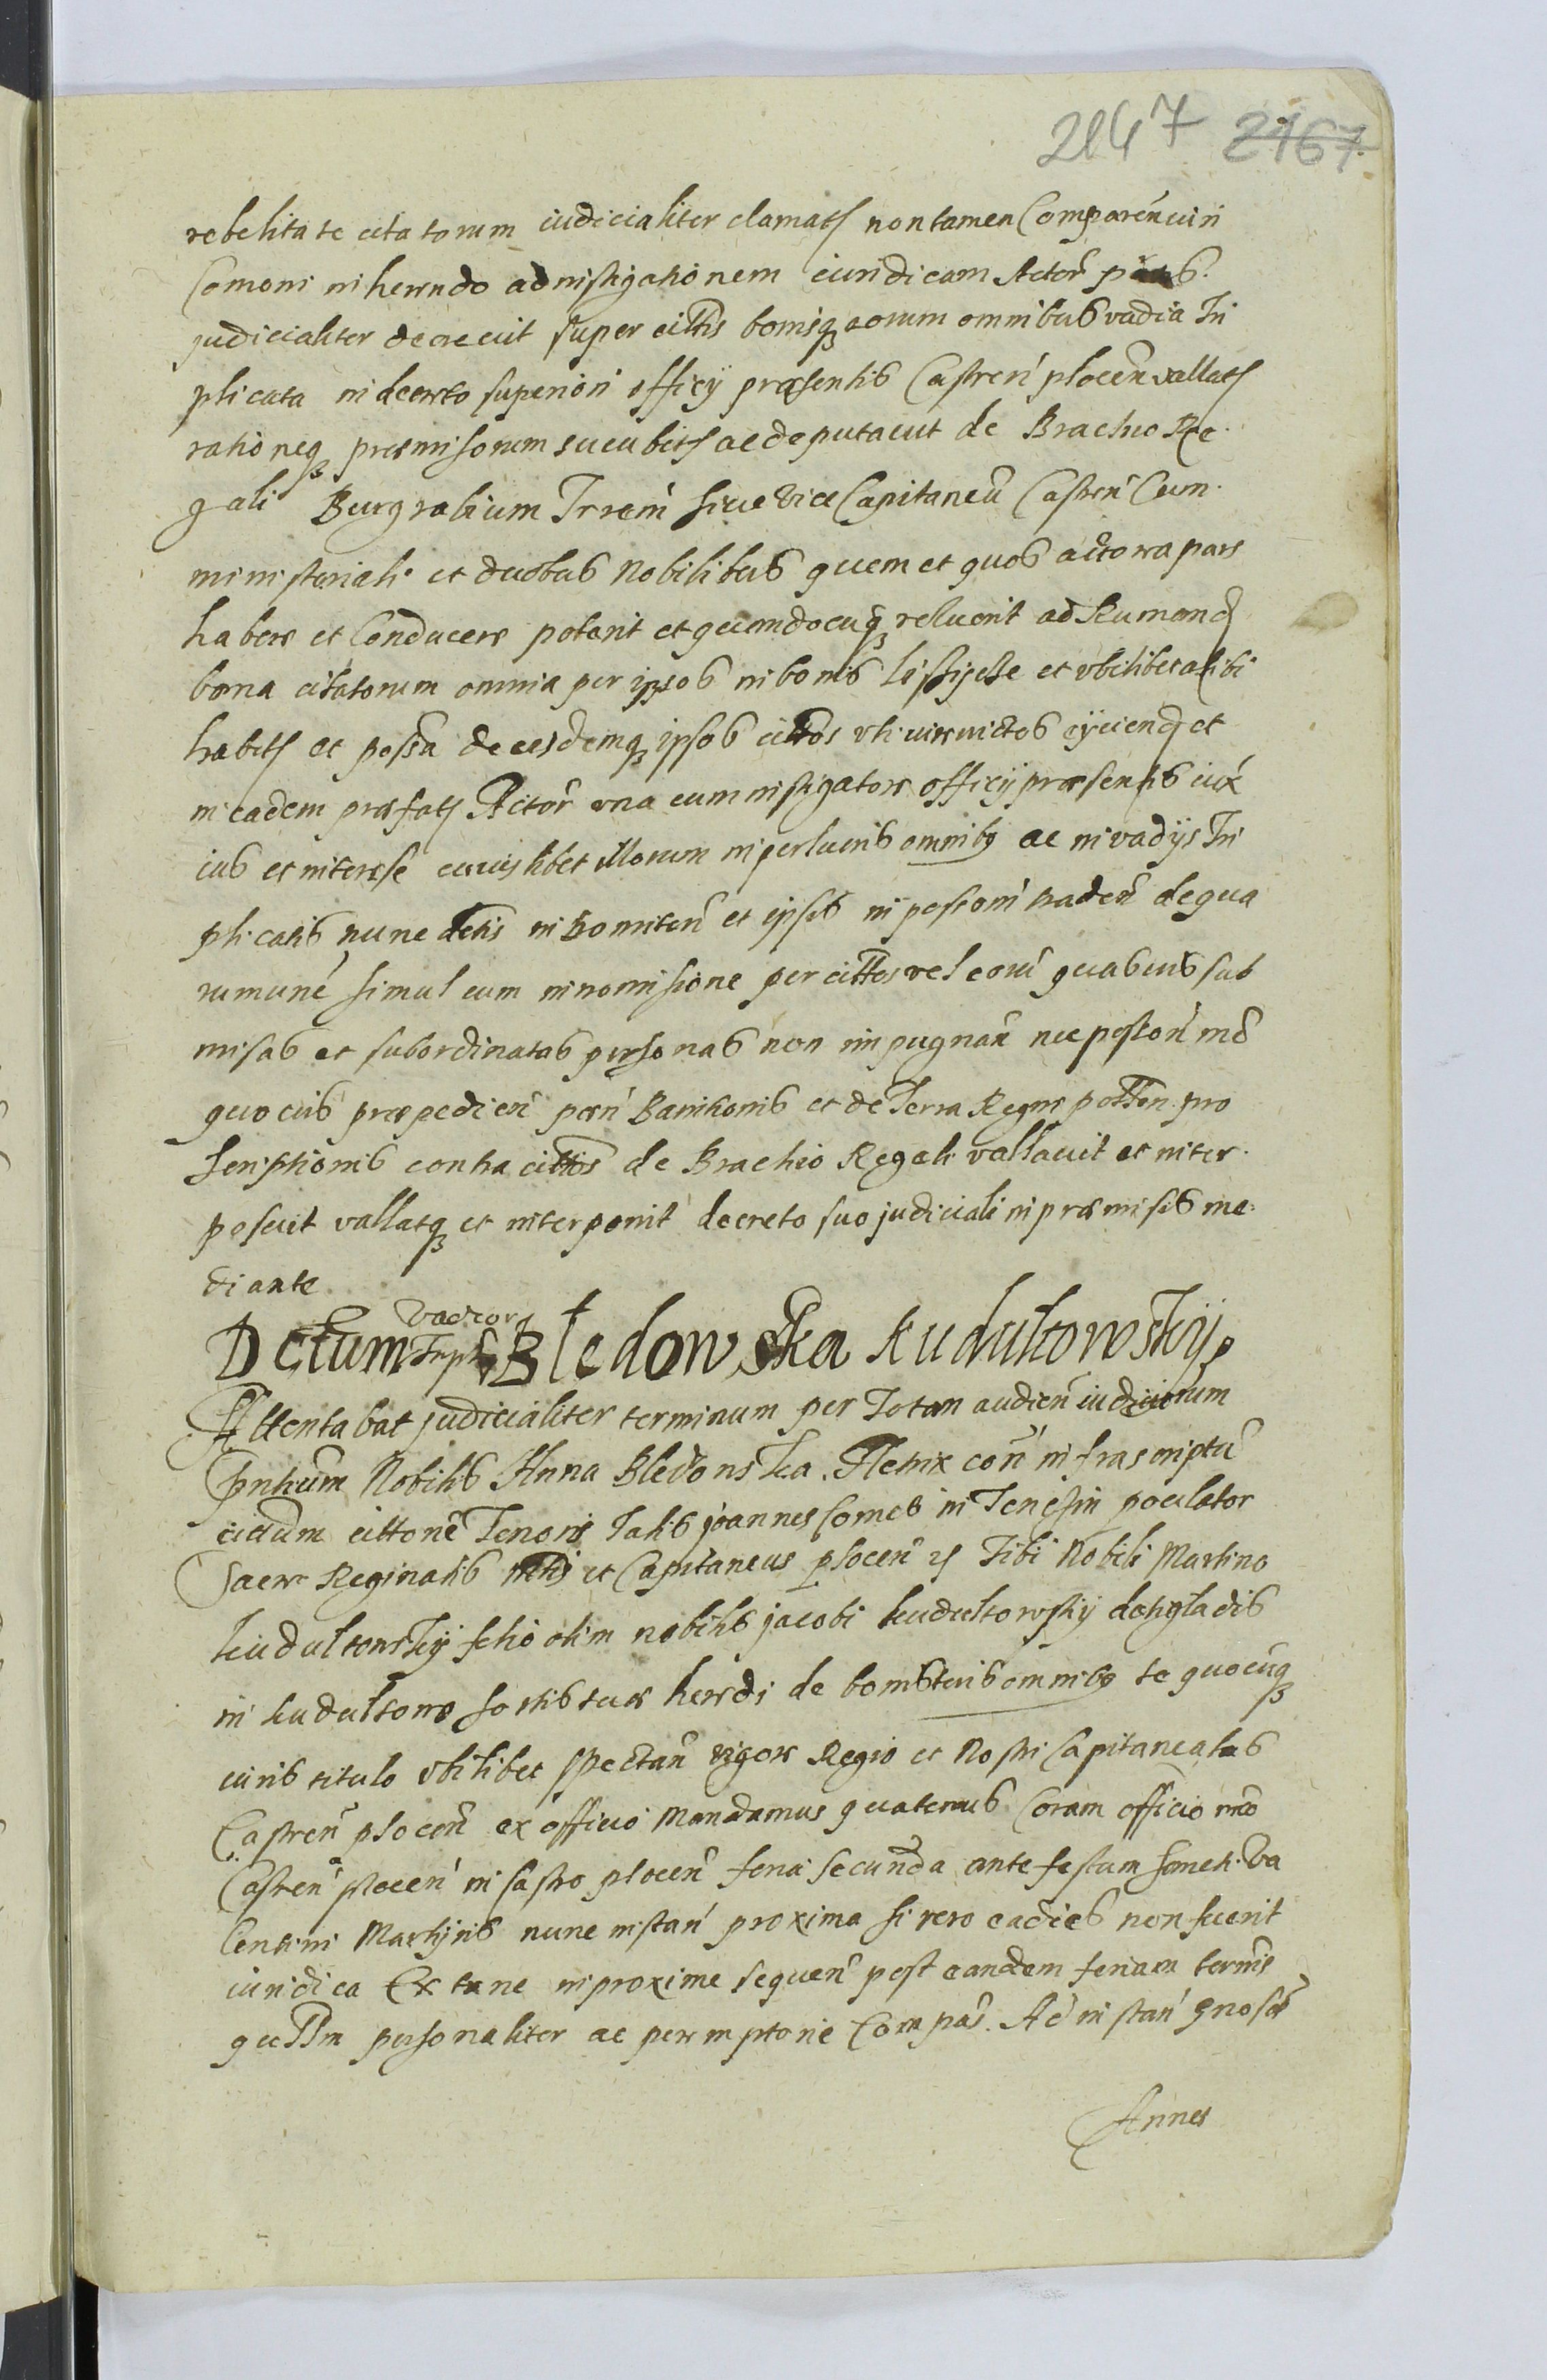 2147 2167
rebelitate citatorum iudicialiter clamat nontamen Comparen iuri
Comoni inherendo adinstigationem iuridicam Actor
judicialiter decrevit super cittis bonisq eorum omnibus vadia Tri
plicata in decreto superiori officij præsentis Castren plocen vallat
rationeq præmissorum sucubit ac deputavit de Brachio Re
gali Burgrabium Trrem sive Vice Capitaneu Castren Cum
ministeriali et duobus Nobilibus quem et quos actorea pars
habere et Conducere poterit et quandocuq voluerit ad Rumand
bona citatorum omnia per ipsos in bonis et vbilibet alibi
habit et possa de eisdemq ipsos cittos vti iurevictos eijciend et
in eadem præfat Actor vna cum instigatore officij præsentis iux
ius et interesse cuiuslibet illorum in perlucris omnibq ac in vadijs Tri
plicatis nunc dctis introomiten et ipsis in possioni traden de qua
rumune simul cum intromissione per cittos vel eoru quasuis sub
missas et subordinatas personas non impugnan nec postori mo
quocuis præpedien pæn Banitionis et de Terra Regni potten pro
scriptionis contra cittos de Brachio Regali vallavit et inter
posuit vallatq et interponit decreto suo judiciali in præmissis me
diante
Dctum Vadior Tripl Bledowska kudultowskij
Attentabat judicialiter terminum per Totam audien iudiciorum
pntium Nobilis Anna Bledowska Actrix con infrascriptu
citatum cittone Tenoris Talis joannes Comes in Tenczin poculator
Sacræ Reginalis Mttis et Capitaneus plocen Tibi Nobili Martino
kudultowskij filio olim nobilis jacobi kudultowskij de
in kudultowo sortis tuæ heredi de bonis tuis omnibq te quocuq
iuris titulo vbilibet spectan vigore Regio et Nostri Capitaneatus
Castren plocen ex officio Mandamus quatenus Coram officio nro
Castren plocen in Castro plocen feria Secunda ante festum Sancti Va
lentini Martijris nunc instan proxima si vero eadies non fuerit
iuridica Ex tunc inproxime sequen post eandem feriam termis
personaliter ac peremptorie Compas Ad instan Gnosæ
Annes